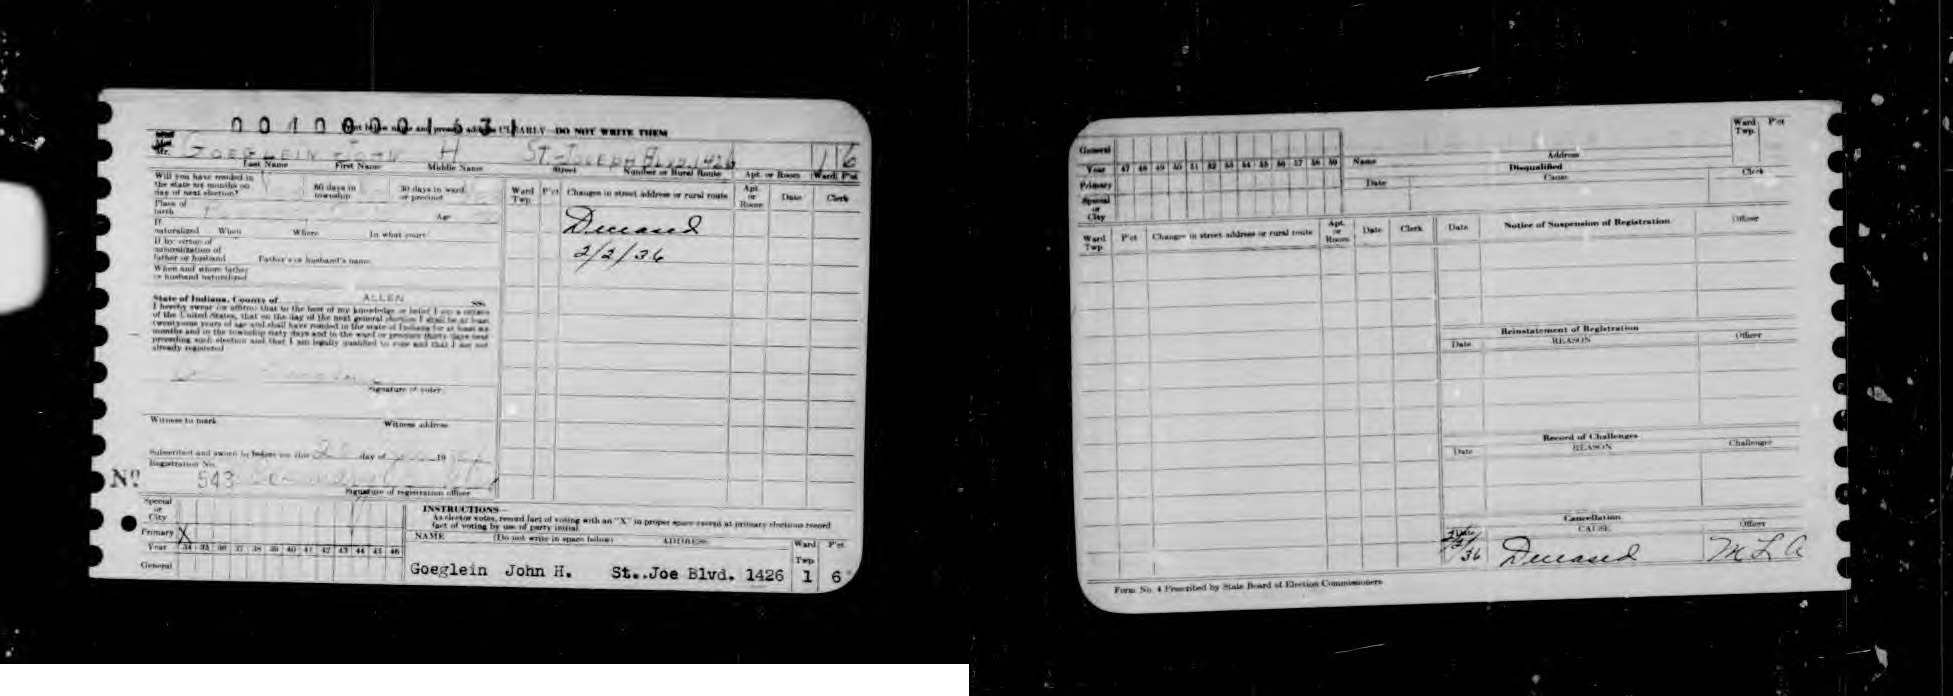 00400001631
Print below name and present address CLEARLY—DO NOT WRITE THEM
Mr. GOEGLEIN JOHN H ST. JOSEPH BLVD. 1426 1 6
Last Name First Name Middle Name Street Number or Rural Route Apt. or Room Ward P'ct
Will you have resided in
the state six months on
day of next election?
60 days in
township
30 days in ward
or precinct
Place of
birth
Age
If
naturalized When Where In what court
If by virtue of
naturalization of
father or husband Father's or husband's name
When and where father
or husband naturalized
State of Indiana, County of ALLEN ss.
I hereby swear (or affirm) that to the best of my knowledge or belief I am a citizen
of the United States, that on the day of the next general election I shall be at least
twenty-one years of age and shall have resided in the state of Indiana for at least six
months and in the township sixty days and in the ward or precinct thirty days next
preceding such election and that I am legally qualified to vote and that I am not
already registered
Signature of voter
Witness to mark Witness address
Subscribed and sworn to before me this day of 19
Registration No.
No 543
Signature of registration officer
Ward
Twp.
P'ct
Changes in street address or rural route
Apt.
or
Room
Date
Clerk
Deceased
2/2/36
Special
or
City
Primary X
Year 34 35 36 37 38 39 40 41 42 43 44 45 46
General
INSTRUCTIONS—
As elector votes, record fact of voting with an "X" in proper space except at primary elections record
fact of voting by use of party initial.
NAME (Do not write in space below) ADDRESS Ward Twp. P'ct
Goeglein John H. St..Joe Blvd. 1426 1 6
General
Year 47 48 49 50 51 52 53 54 55 56 57 58 59
Primary
Special
or
City
Name Address
Ward
Twp.
P'ct
Disqualified
Date Cause Clerk
Ward
Twp.
P'ct
Changes in street address or rural route
Apt.
or
Room
Date
Clerk
Date Notice of Suspension of Registration Officer
Reinstatement of Registration
Date REASON Officer
Record of Challenges
Date REASON Challenger
Cancellation
Date CAUSE Officer
2/2/36 Deceased M L A
Form No. 4 Prescribed by State Board of Election Commissioners